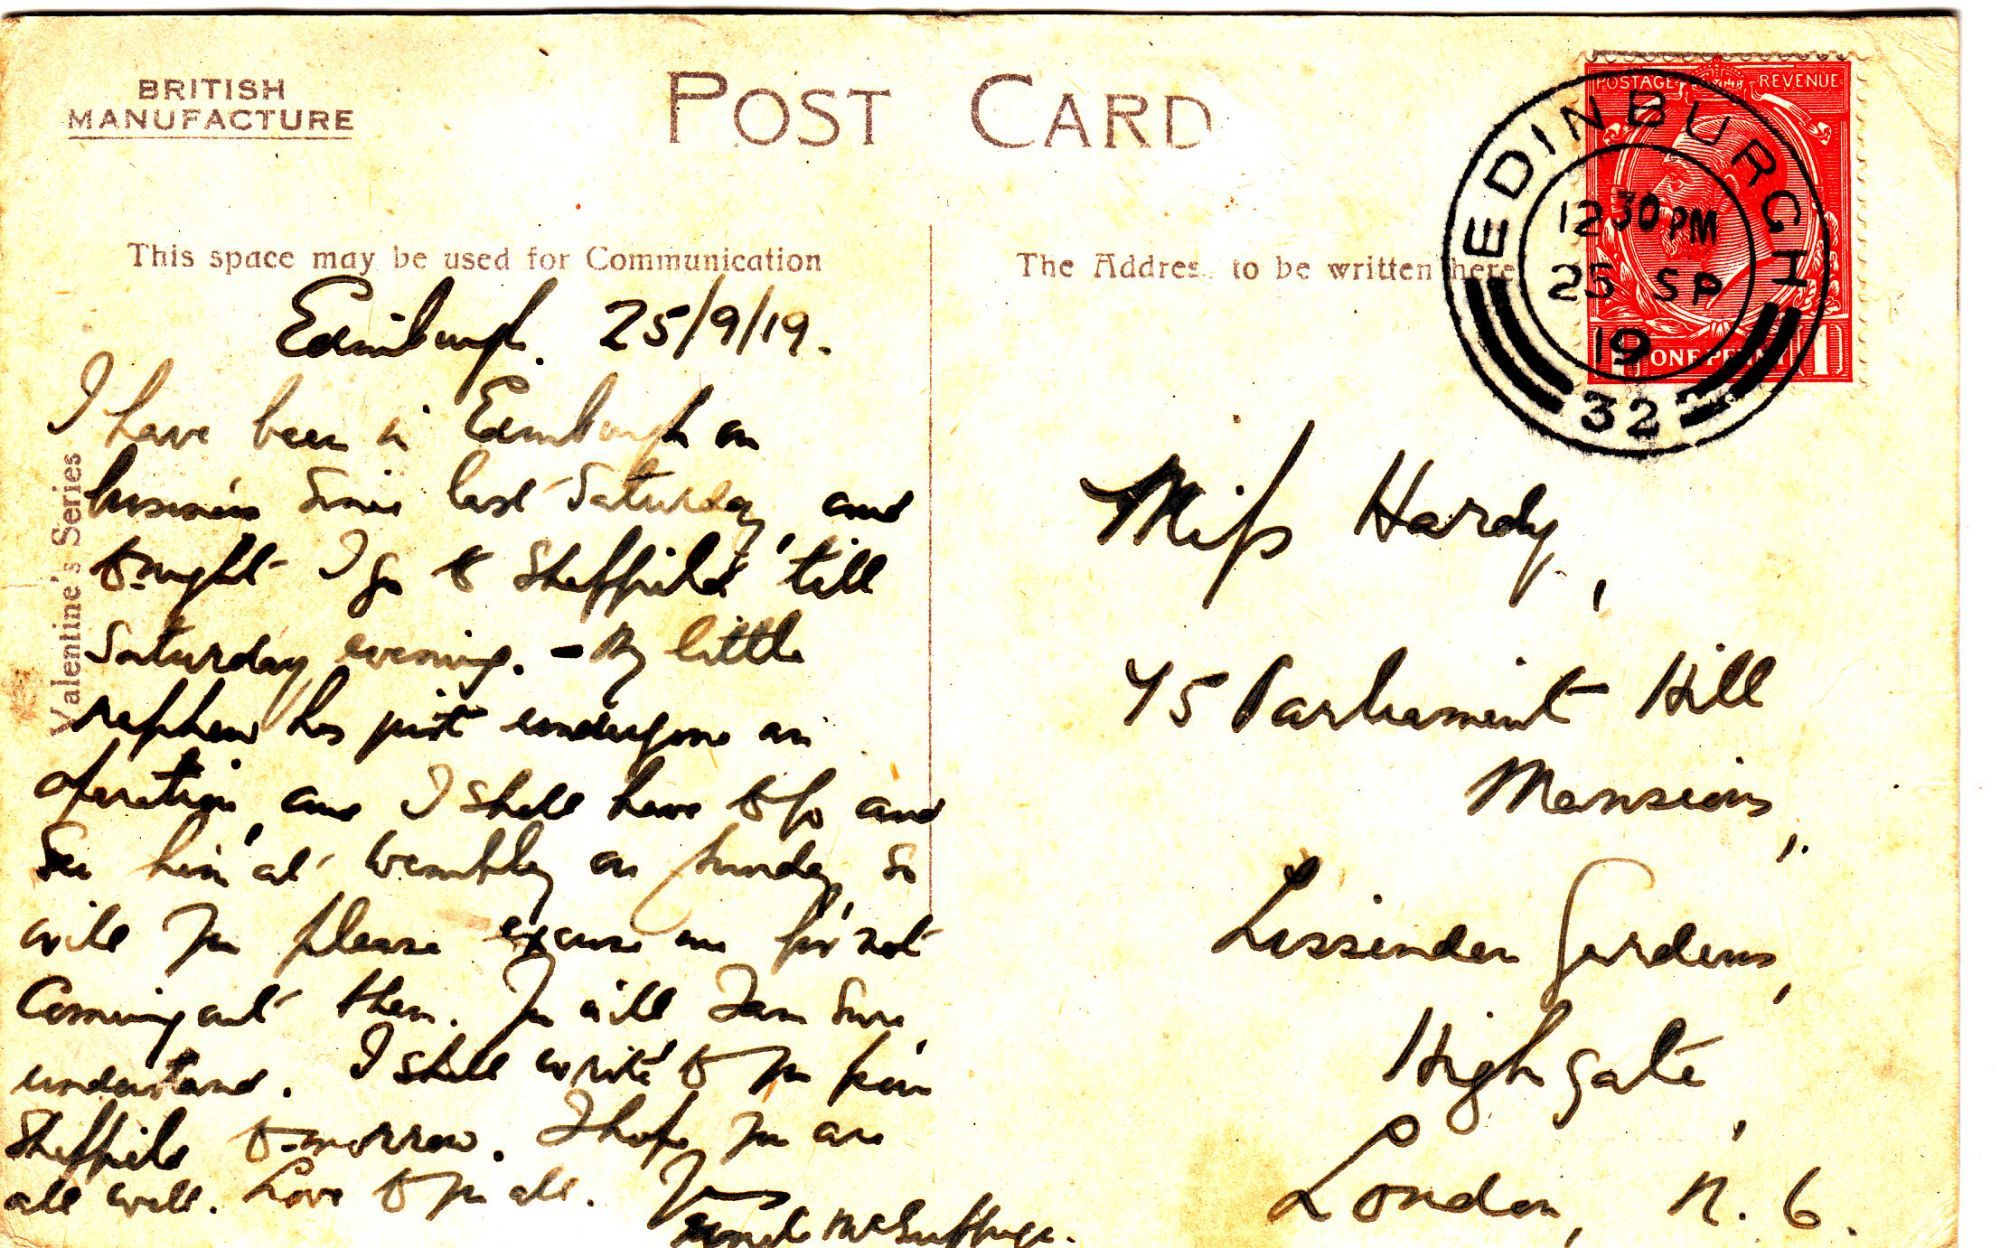 BRITISH
MANUFACTURE
POST CARD
POSTAGE REVENUE
ONE PENNY 1
EDINBURGH
12 30 PM
25 SP
19
32
This space may be used for Communication
The Address to be written here
Valentine's Series
Edinburgh. 25/9/19.
I have been in Edinburgh on
business since last Saturday, and
to-night I go to Sheffield 'till
Saturday evening. - My little
nephew has just undergone an
operation, and I shall have to go and
see him at Wembley on Sunday, so
will you please excuse me for not
coming out then. You will I am sure
understand. I shall write to you from
Sheffield to-morrow. I hope you are
all well. Love to you all. Yours
Uncle
Miss Hardy,
45 Parliament Hill
Mansions,
Lissenden Gardens,
Highgate,
London, N. 6.